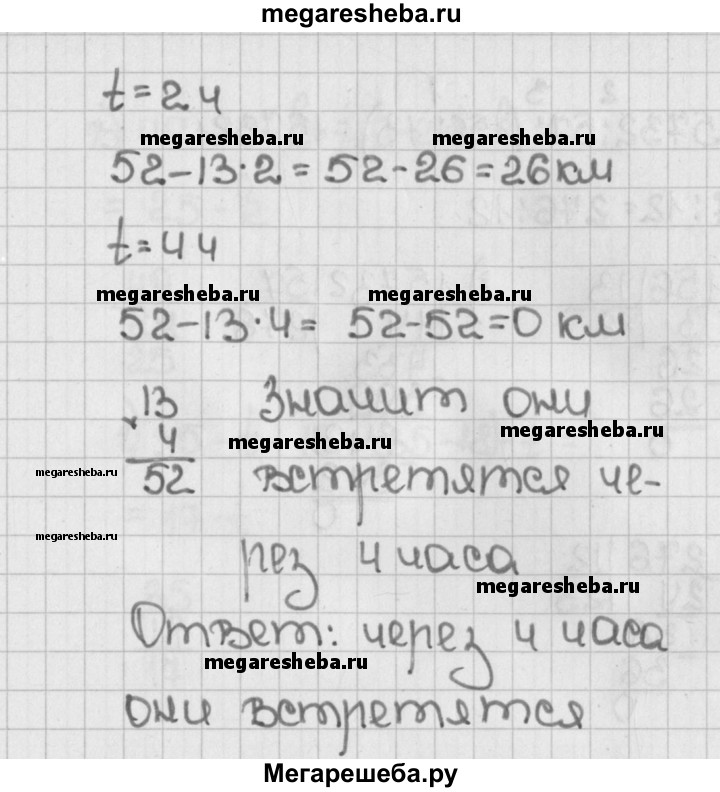 megaresheba.ru
t = 2 ч
megaresheba.ru megaresheba.ru
52 - 13 · 2 = 52 - 26 = 26 км
t = 4 ч
megaresheba.ru megaresheba.ru
52 - 13 · 4 = 52 - 52 = 0 км
13 Значит они
megaresheba.ru
× 4 megaresheba.ru
megaresheba.ru
52 встретятся че-
megaresheba.ru
рез 4 часа
megaresheba.ru
Ответ: через 4 часа
megaresheba.ru
они встретятся
Мегарешеба.ру